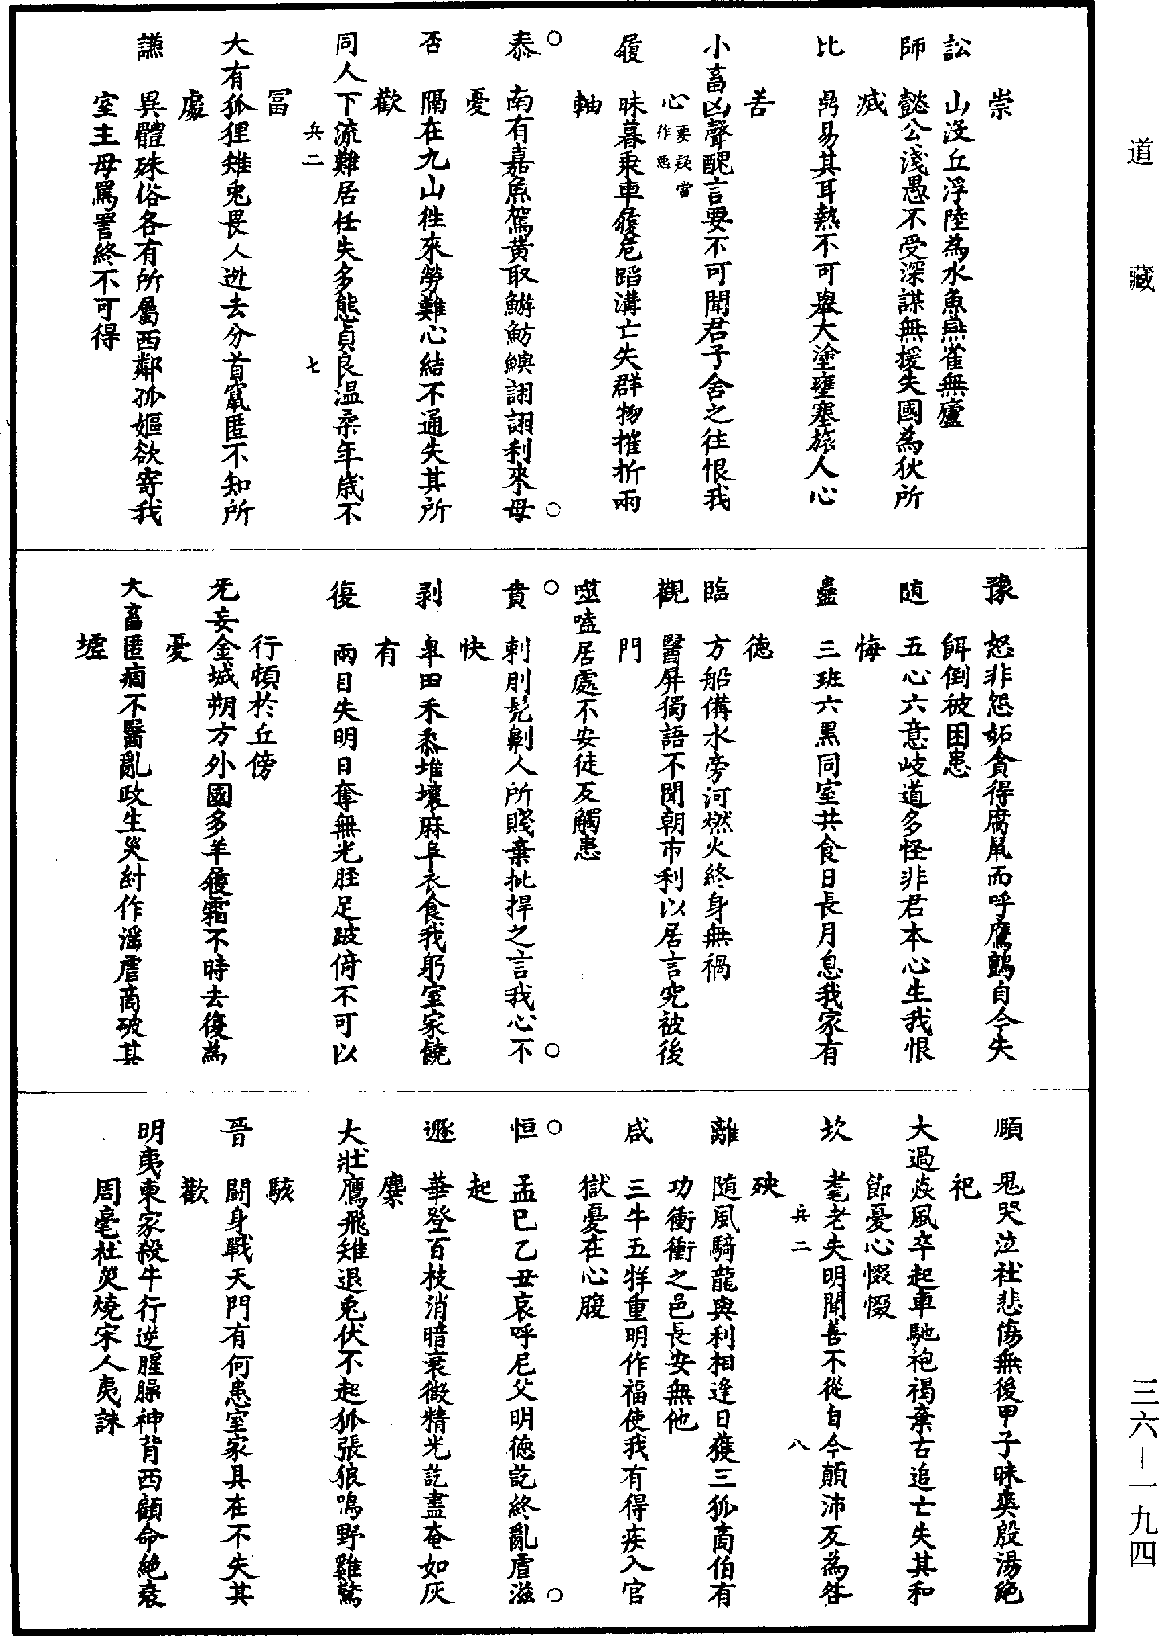 道藏
崇
訟　山没丘浮陸為水魚燕雀無廬
師　懿公淺愚不受深謀無援失國為狄所
滅
比　鼎易其耳熱不可舉大塗壅塞旅人心
苦
小畜凶聲醜言要不可聞君子舍之往恨我
心要疑當作惡
履　昧暮乘車履危蹈溝亡失群物摧折兩
軸
○　○
泰　南有嘉魚駕黃取鰌魴鱮詡詡利來毋
憂
否　隔在九山往來勞難心結不通失其所
歡
同人下流難居任失多態貞良溫柔年歲不
兵二　七
富
大有狐狸雉兔畏人逃去分首竄匿不知所
處
謙　異體殊俗各有所屬西鄰孤嫗欲寄我
室主母罵詈終不可得
豫　怒非怨妬貪得腐鼠而呼鷹鷂自令失
餌倒被困患
隨　五心六意岐道多怪非君本心生我恨
悔
蠱　三班六黑同室共食日長月息我家有
德
臨　方船備水旁河燃火終身無禍
觀　醫屏獨語不聞朝市利以居言究被後
門
噬嗑居處不安徒反觸患
○　○
賁　刺刖髡劓人所賤棄批捍之言我心不
快
剝　阜田禾黍堆壤麻阜衣食我躬室家饒
有
復　兩目失明日奪無光脛足跛倚不可以
行頓於丘傍
无妄金城朔方外國多羊履霜不時去復為
憂
大畜匿痼不醫亂政生災紂作淫虐商破其
墟
頤　鬼哭泣社悲傷無後甲子昧爽殷湯絕
祀
大過焱風卒起車馳袍褐棄古追亡失其和
節憂心惙惙
坎　耄老失明聞善不從自令顛沛反為咎
兵二　八
殃
離　隨風騎龍與利相逢日獲三狐商伯有
功衝衝之邑長安無他
咸　三牛五牂重明作福使我有得疾入官
獄憂在心腹
○　○
恒　孟巳乙丑哀呼尼父明德訖終亂虐滋
起
遯　華登百枝消暗衰微精光訖盡奄如灰
麋
大壯鷹飛雉退兔伏不起狐張狼鳴野雞驚
駭
晉　鬭身戰天門有何患室家具在不失其
歡
明夷東家殺牛行逆腥臊神背西顧命絕衰
周亳社災燒宋人夷誅
三六—一九四